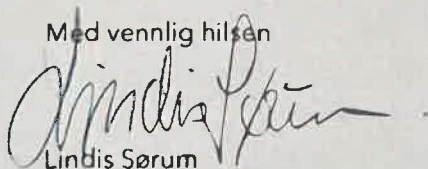 Med vennlig hilsen
Lindis Sørum
Lindis Sørum